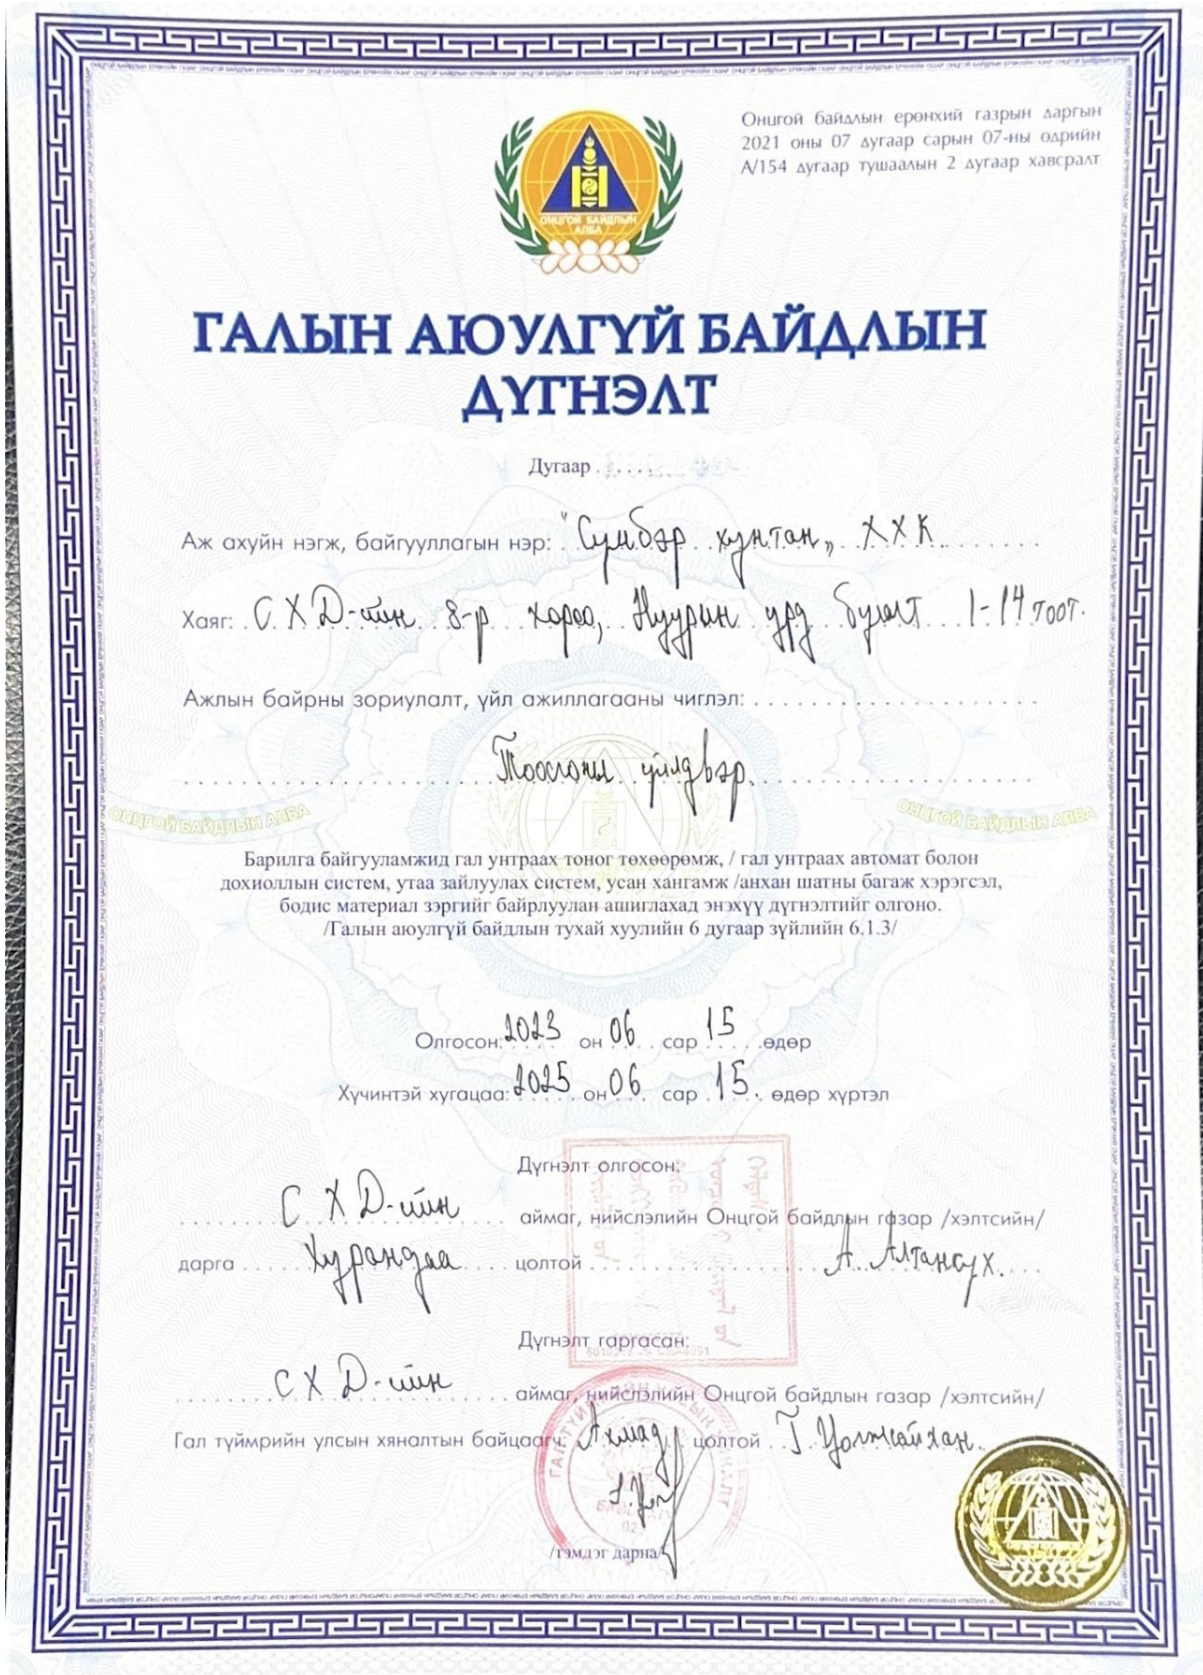 Онцгой байдлын ерөнхий газрын даргын
2021 оны 07 дугаар сарын 07-ны өдрийн
А/154 дугаар тушаалын 2 дугаар хавсралт
ОНЦГОЙ БАЙДЛЫН
АЛБА
ГАЛЫН АЮУЛГҮЙ БАЙДЛЫН
ДҮГНЭЛТ
Дугаар
Аж ахуйн нэгж, байгууллагын нэр: "Сүмбэр хунтан„ ХХК
Хаяг: СХД-ийн 8-р хороо, Нуурын урд бууст 1-14 тоот.
Ажлын байрны зориулалт, үйл ажиллагааны чиглэл:
Тоосгоны үйлдвэр.
ОНЦГОЙ БАЙДЛЫН АЛБА
ОНЦГОЙ БАЙДЛЫН АЛБА
Барилга байгууламжид гал унтраах тоног төхөөрөмж, / гал унтраах автомат болон
дохиоллын систем, утаа зайлуулах систем, усан хангамж /анхан шатны багаж хэрэгсэл,
бодис материал зэргийг байрлуулан ашиглахад энэхүү дүгнэлтийг олгоно.
/Галын аюулгүй байдлын тухай хуулийн 6 дугаар зүйлийн 6.1.3/
Олгосон: 2023 он 06 сар 15 өдөр
Хүчинтэй хугацаа: 2025 он 06 сар 15 өдөр хүртэл
Дүгнэлт олгосон:
СХД-ийн аймаг, нийслэлийн Онцгой байдлын газар /хэлтсийн/
дарга Хурандаа цолтой А. Алтансүх.
Дүгнэлт гаргасан:
СХД-ийн аймаг, нийслэлийн Онцгой байдлын газар /хэлтсийн/
Гал түймрийн улсын хяналтын байцаагч Ахмад цолтой Т
/тэмдэг дарна/